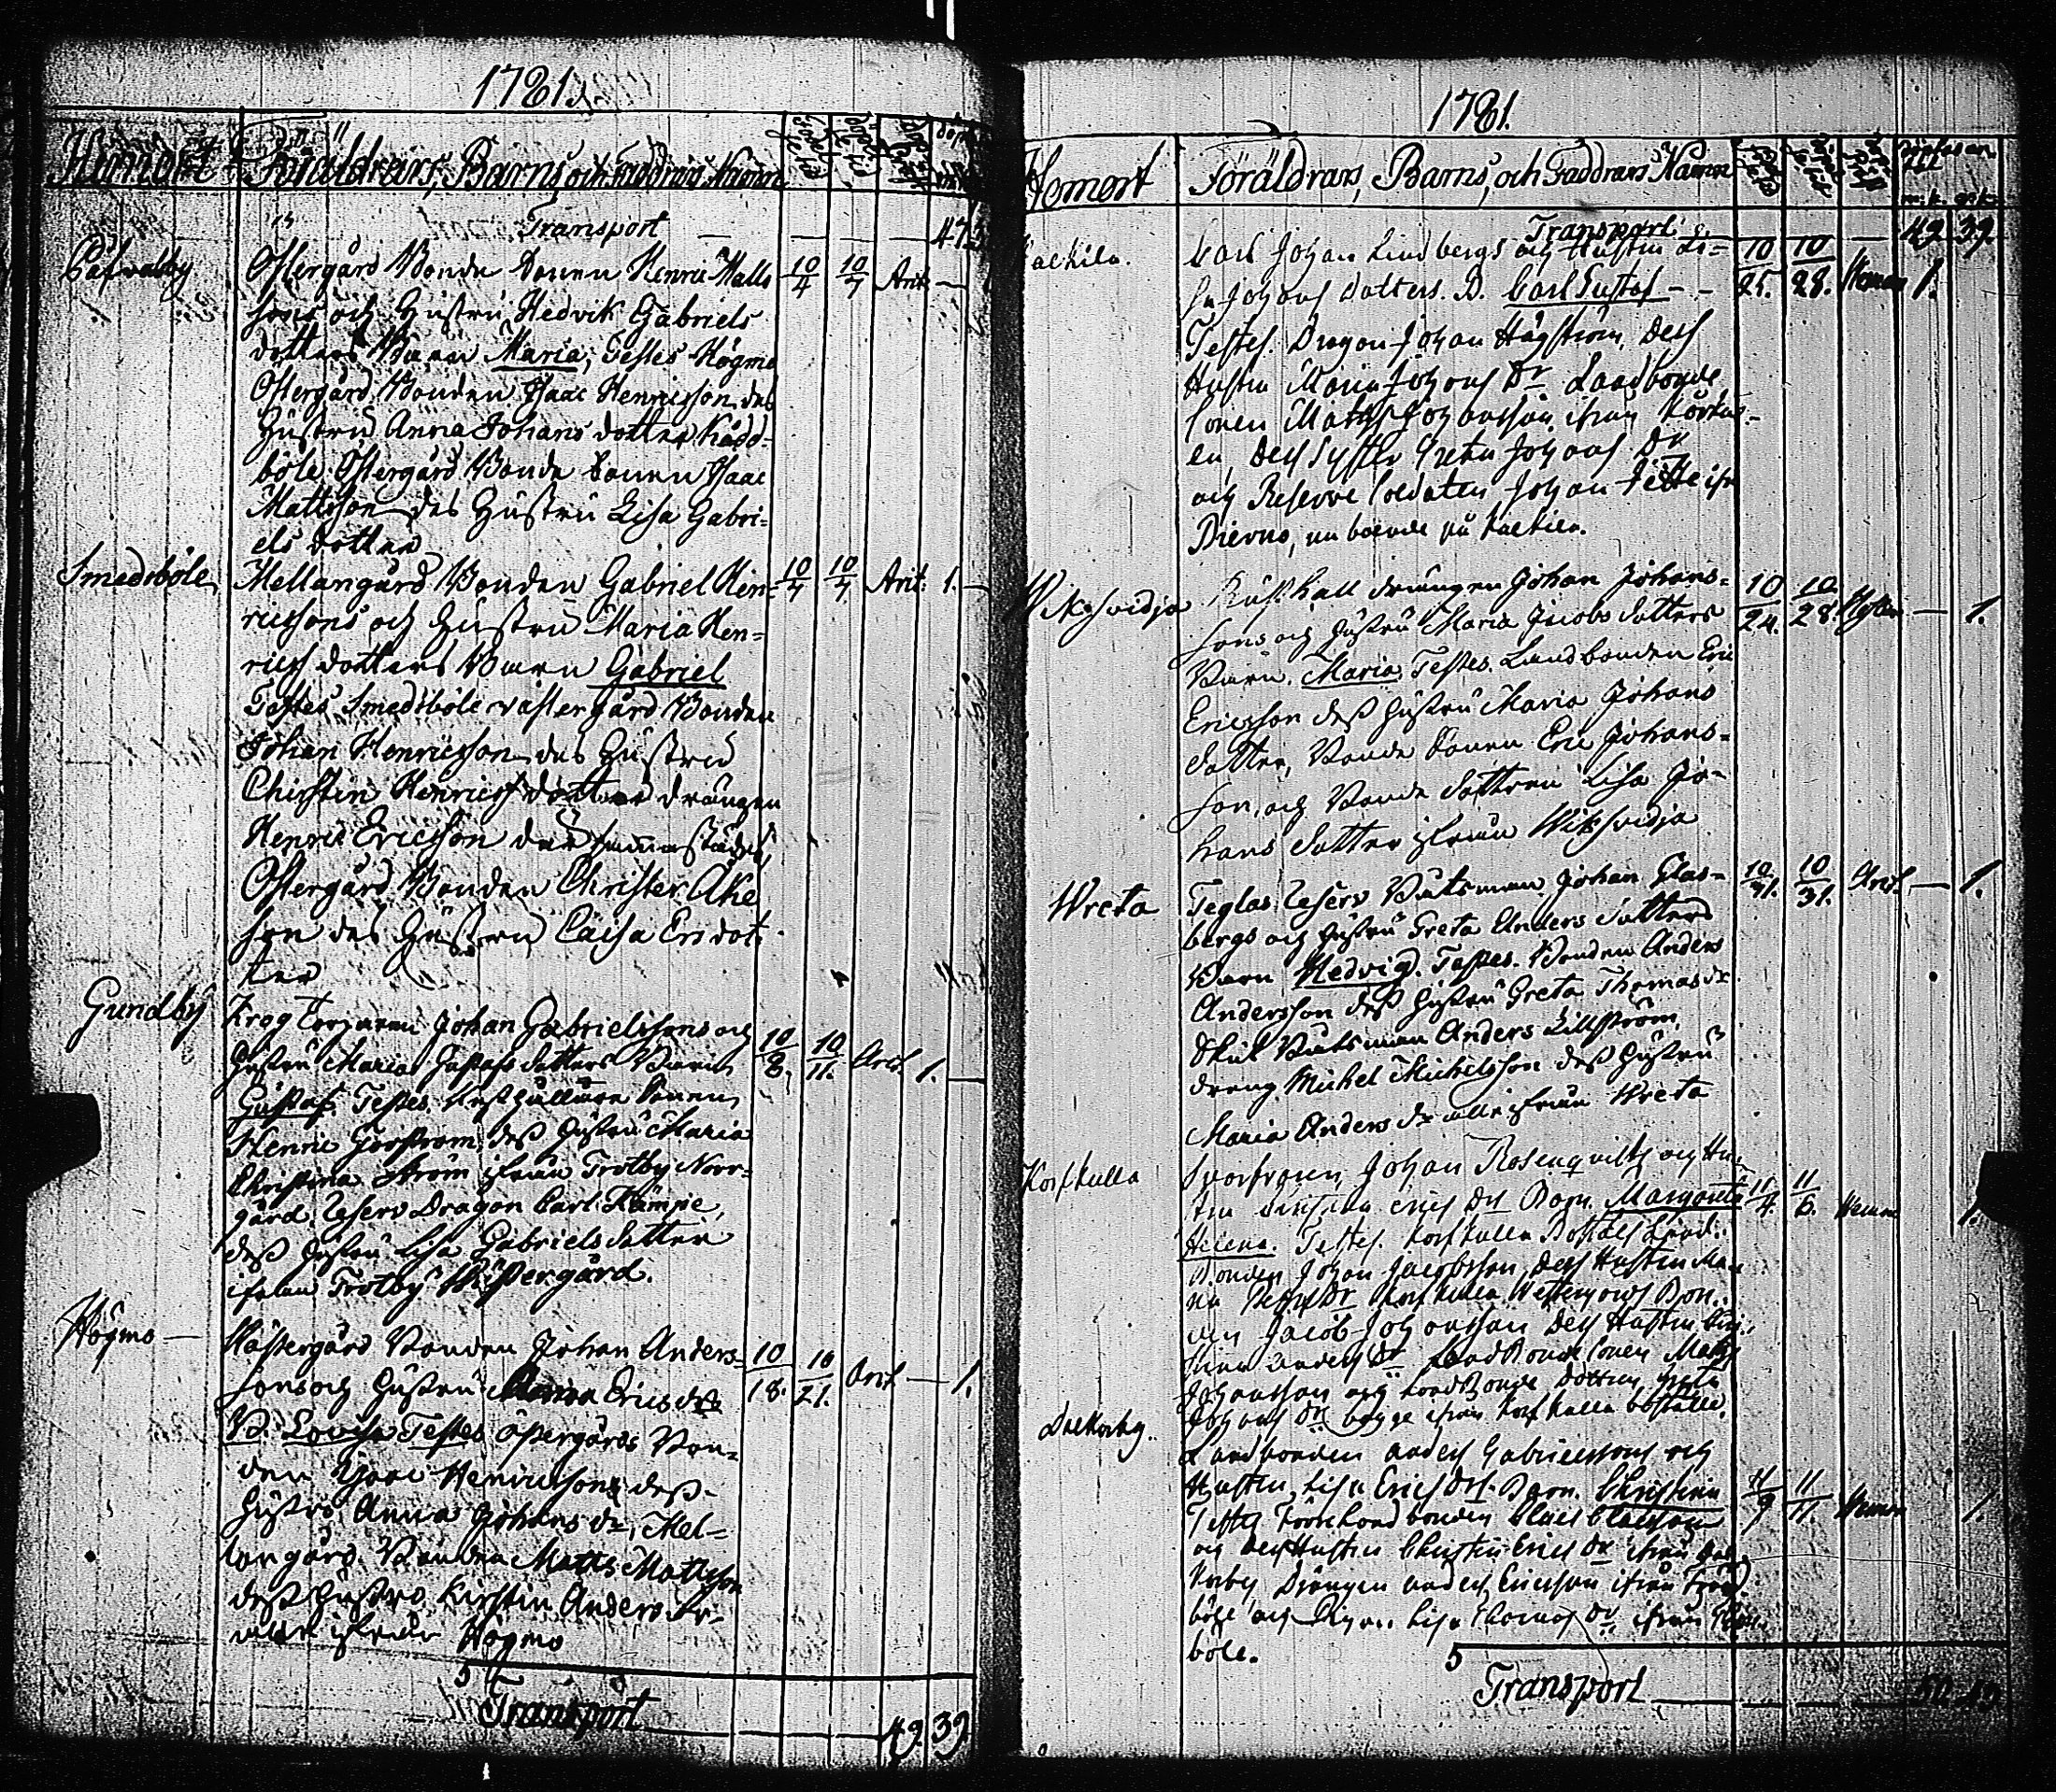 1781.
Hemort Föräldrars, Barns och Faddrars Namn
Transport 47
Påfvalby Östergård Bonde Sonen Henric Matts
sons och Hustru Hedvik Gabriels
dotters Barn Maria, Testes Högmo
Östergård Bonden Isaac Henricsson des
Hustru Anna Johans dotter Kådd=
böle Östergård Bonde Sonen Isaac
Mattsson des Hustru Lisa Gabri=
els dotter
10/4 10/7 Arit
Smedsböle Mellangård Bonden Gabriel Hen=
ricssons och Hustru Maria Hen=
rics dotters Barn Gabriel
Testes Smedsböle västergård Bonden
Johan Henricsson des Hustru
Chirstin Henrics dotter drängen
Henric Ericsson där sammastädes
Östergård Bonden Christer Åke
son des Hustru Caisa Ers dot
ter
10/4 10/7 Arit. 1. —
Gundby Krog Torparen Johan Gabrielssons och
Hustru Maria Gustafs dotters Barn
Gustaf. Testes. Sonen
Henric des Hustru Maria
Christina Ström ifrån Trotby Norr=
gård, Reserv Dragon Carl Kämpe,
dess Hustru Lisa Gabriels dotter
ifrån Trotby Västergård.
10/8. 10/11. Arit. 1. —
Högmo — Västergård Bonden Johan Anders=
sons och Hustru Anna Erics drs
B. Lovisa Testes Östergårds Bon=
den Isaac Henricsson, dess
Hustro Anna Johans dr, Mel=
langård Bonden Matts Mattsson
dess Hustro Kirstin Anders dr
alla ifrån Högmo
10/18. 10/21. Arit — 1.
5
Transport 49. 39.
1781.
Hemort Föräldrars, Barns, och Faddrars Namn
Transport 49. 39.
Carl Johan Lindbergs och Hustru
Johans dotters. B. Carl Gustaf - -
Testes. Dragon Johan Hägström, dess
Hustru Maria Johans Dr Landbonde
sonen Matts Johansson ifrån
en, dess Syster Greta Johans Dr
och Reserve soldaten Johan
nu boende på
10/25. 10/28. Hemma 1.
Wiksvidja Rusthåll drängen Johan Johans=
sons och Hustru Maria Jacobs dotters
Barn. Maria, Testes. Landbonden Eric
Ericsson dess Hustru Maria Johans
dotter, Bonde Sonen Eric Johans=
son, och Bonde dottren Lisa Jo=
hans dotter ifrån Wiksvidja
10/24. 10/28. — 1.
Wreta Teglas Reserv Båtsman Johan Glas=
bergs och Hustru Greta Anders dotters
Barn Hedvig. Testes. Bonden Anders
Andersson dess Hustru Greta Thomas dr
Båtsman Anders Lillström,
dreng Michel Michelsson dess Hustru
Maria Anders dr alla ifrån Wreta
10/31. 10/31. Arit. — 1.
Korskulla Johan Rosenqvists och Hu=
stru Erics Drs Barn. Margareta
Helena. Testes. Korskulla Boställs Land=
bonden Johan Jacobsson, dess Hustru Ma=
ria Dr Korskulla Westergårds Bon=
den Jacob Johansson dess Hustru
Anders Dr Landbonde sonen Matts
Johansson och Landbonde dottren Greta
Johans Dr bägge ifrån Korskulla boställe.
11/4. 11/6. Hemma 1.
Landbonden Anders Gabrielssons och
Hustru, Lisa Erics Drs. Barn. Christina
Testes Landbonden Claes Claesson
och dess Hustru Christin Erics Dr ifrån
Drängen Anders Ericsson ifrån
böle och Pigan Lisa Thomas Dr ifrån
böle.
11/9 11/11. Hemma 1.
5
Transport